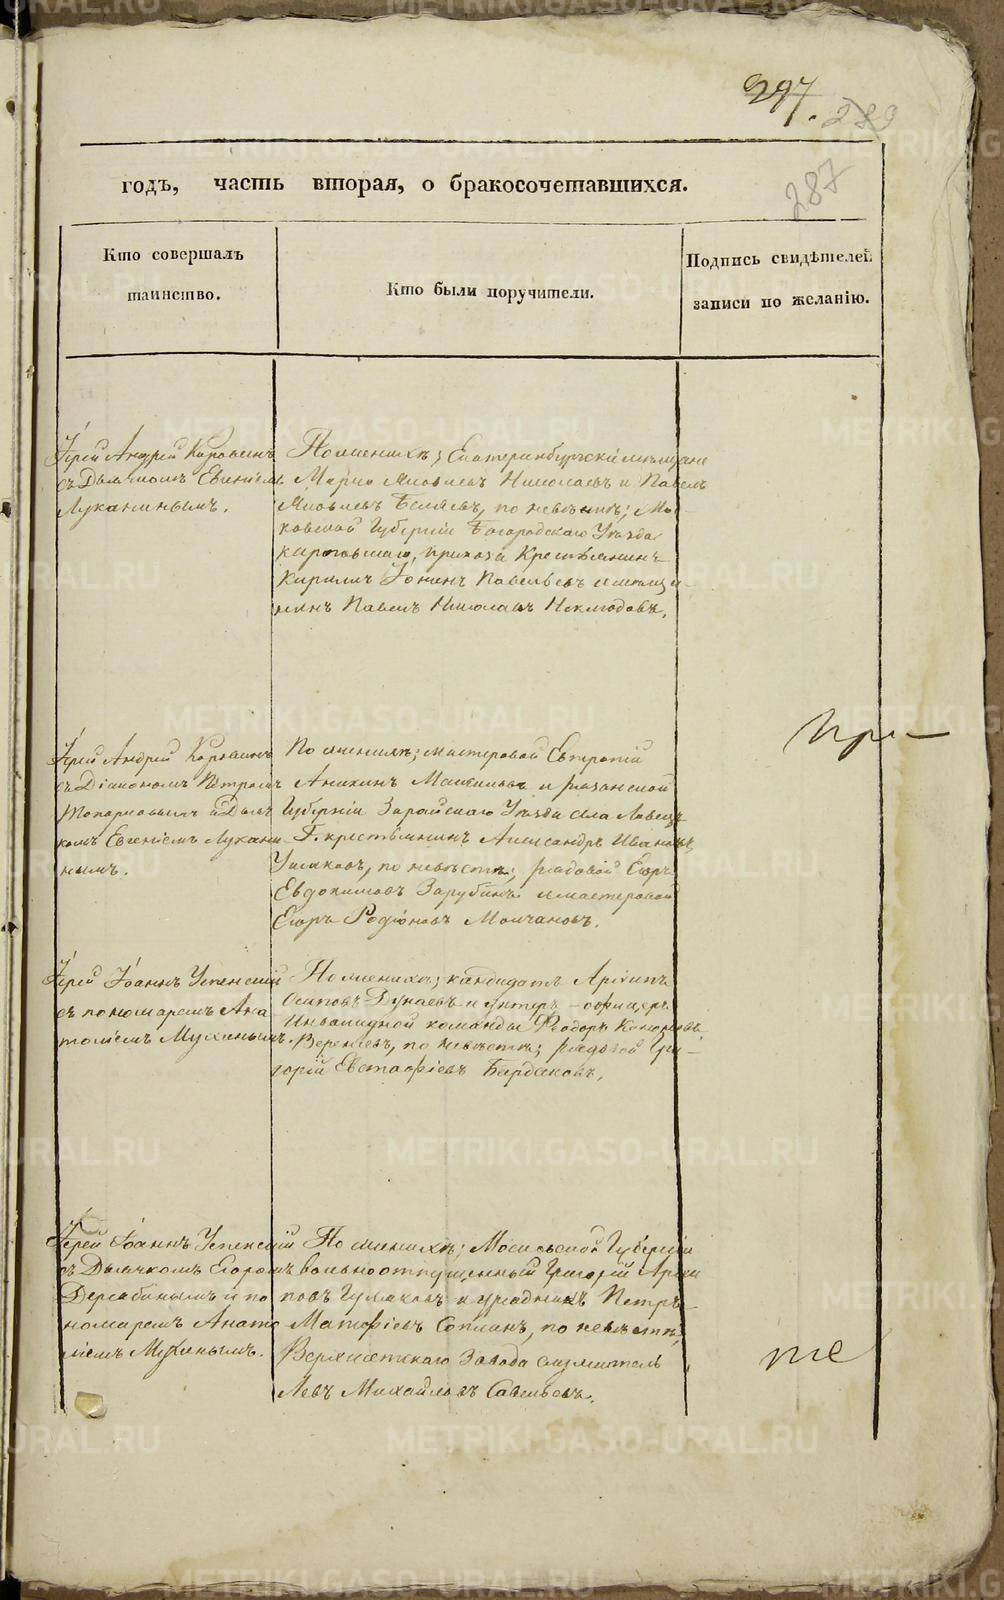 297.
289
287
годъ, часть вторая, о бракосочетавшихся.
Кто совершалъ
таинство.
Кто были поручители.
Подпись свидѣтелей
записи по желанію.
Іерей Андрей
съ Дьячкомъ Евгеніемъ
Луканинымъ.
По женихѣ; Екатеринбургскіе мѣщане
Марко Яковлевъ Николаевъ и Павелъ
Яковлевъ Бѣляевъ, по невѣстѣ; Мос-
ковской Губерніи Богородскаго Уѣзда
прихода Крестьянинъ
Кирилъ Іонинъ Савельевъ и мѣщани-
нинъ Павелъ Николаевъ Неклюдовъ.
Іерей Андрей
съ Діакономъ Петромъ
Топорковымъ и Дьяч-
комъ Евгеніемъ Лукани-
нымъ.
По женихѣ; мастеровой Евтропій
Аникинъ и Рязанской
Губерніи Зарайскаго Уѣзда села
Г. крестьянинъ Александръ Ивановъ
Ушаковъ, по невѣстѣ; рядовой Егоръ
Евдокимовъ Зарубинъ и мастеровой
Егоръ Родіоновъ Молчановъ.
при-
Іерей Іоаннъ Успенскій
съ пономаремъ Ана-
толіемъ Мухинымъ.
По женихѣ; кандидатъ Архипъ
Осиповъ Дунаевъ и унтеръ-офицеръ
Инвалидной команды Ѳедоръ Кононовъ
по невѣстѣ; рядовой Гри-
горій Евстафіевъ Бардаковъ.
Іерей Іоаннъ Успенскій
съ Дьячкомъ Егоромъ
Дерябинымъ и по-
номаремъ Анато-
ліемъ Мухинымъ.
По женихѣ; Московской Губерніи
вольноотпущенный Григорій Архи-
повъ Гумаковъ и урядникъ Петръ
Матфіевъ по невѣстѣ,
Верхисетскаго Завода служитель
Левъ Михайловъ Савельевъ.
же
METRIKI.GASO-URAL.RU